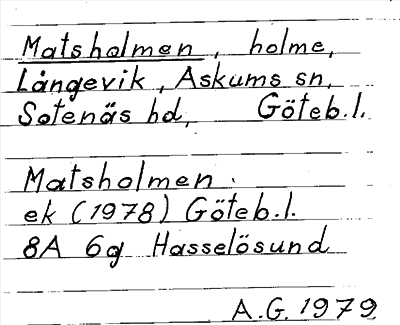 Matsholmen, holme,
Långevik, Askums sn,
Sotenäs hd, Göteb.l.
Matsholmen.
ek (1978) Göteb.l.
8A 6g Hasselösund
A.G. 1979